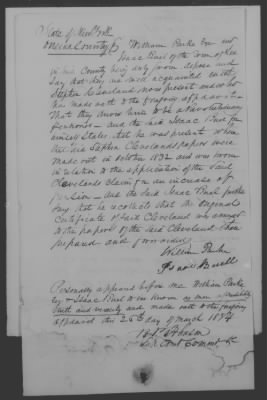 State of New York
Oneida County William Parke Esqr and
Isaac Buel of the town of Lee
in said County being duly sworn depose and
say that they are well acquainted with
Stephen Cleaveland now present and who
has made oath to the foregoing affidavit
that they know him to be a Revolutionary
Pensioner and the said Isaac Buel for
himself States that he was present when
the said Stephen Cleavelands papers were
made out in October 1832 and was sworn
in relation to the application of the said
Cleavelands claim for an increase of
pension and the said Isaac Buel further
says that he recollects that the original
Certificate of said Cleveland was annexed
to the papers of the said Cleveland then
prepared and forwarded
William Parke
Isaac Buell
Personally appeared before me William Parke
Esqr & Isaac Buel to me known as men of
truth and veracity and made oath to the foregoing
affidavit this 26th day of March 1834
Johnson